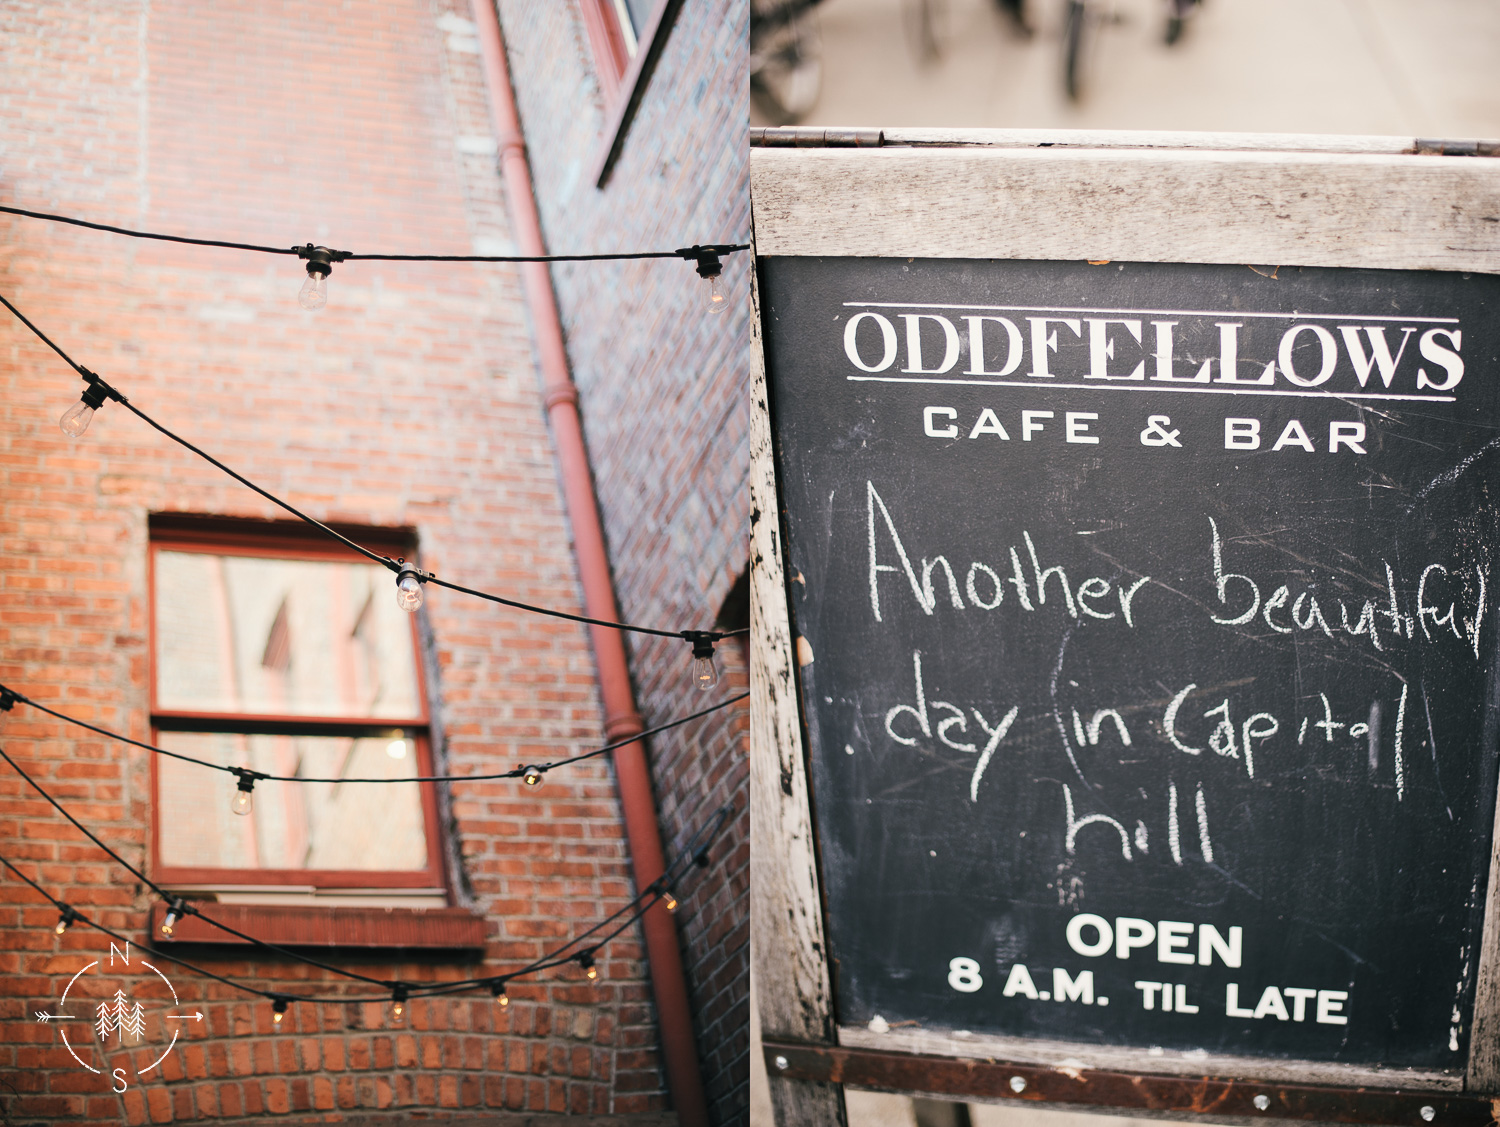 N
S
ODDFELLOWS
CAFE & BAR
Another beautiful
day in Capitol
hill
OPEN
8 A.M. TIL LATE